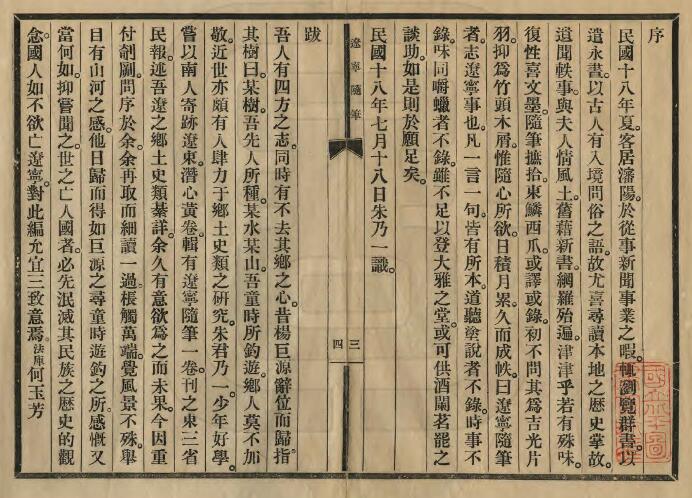 序
民國十八年夏。客居瀋陽。於從事新聞事業之暇。輒瀏覽羣書。以
遣永晝。以古人有入境問俗之語。故尤喜尋讀本地之歷史掌故。
道聞軼事。與夫人情風土。舊藉新書。網羅殆遍。津津乎若有殊味。
復性喜文墨。隨筆摭拾。東鱗西爪。或譯或錄。初不問其爲吉光片
羽。抑爲竹頭木屑。惟隨心所欲。日積月累。久而成帙。曰遼寧隨筆
者。志遼寧事也。凡一言一句。皆有所本。道聽塗說者不錄。時事不
錄。味同嚼蠟者不錄。雖不足以登大雅之堂。或可供酒闌茗罷之
談助。如是則於願足矣。
民國十八年七月十八日朱乃一識。
遼寧隨筆
三
四
跋
吾人有四方之志。同時有不去其鄉之心。昔楊巨源辭位而歸。指
其樹曰。某樹。吾先人所種。某水某山。吾童時所釣遊。鄉人莫不加
敬。近世亦頗有人肆力于鄉土史類之研究。朱君乃一。少年好學。
嘗以南人寄跡遼東。潛心黃卷。輯有遼寧隨筆一卷。刊之東三省
民報。述吾遼之鄉土史類綦詳。余久有意欲爲之而未果。今因重
付剞劂。問序於余。余再取而細讀一過。棖觸萬端。覺風景不殊。舉
目有山河之感。他日歸而得如巨源之尋童時遊釣之所。感慨又
當何如。抑嘗聞之。世之亡人國者。必先泯滅其民族之歷史的觀
念。國人如不欲亡遼寧。對此編允宜三致意焉。法庫何玉芳